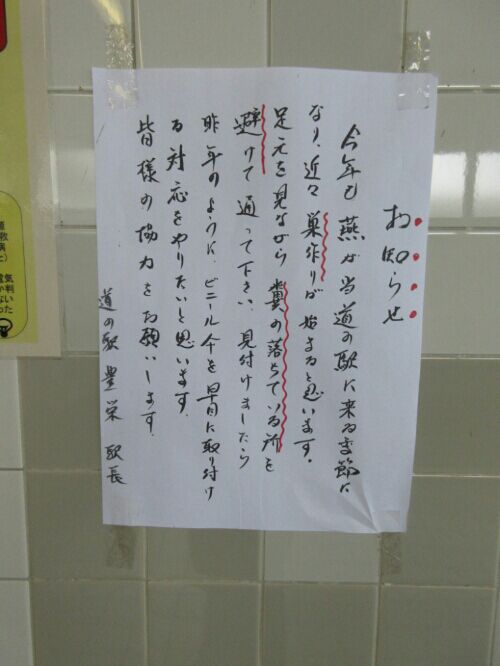 お知らせ
今年も燕が当道の駅に来る季節に
なり、近々巣作りが始まると思います。
足元を見ながら糞の落ちている所を
避けて通って下さい、見付けましたら
昨年のように、ビニール傘を早目に取り付け
る対応をやりたいと思います。
皆様の協力をお願いします。
道の駅豊栄 駅長